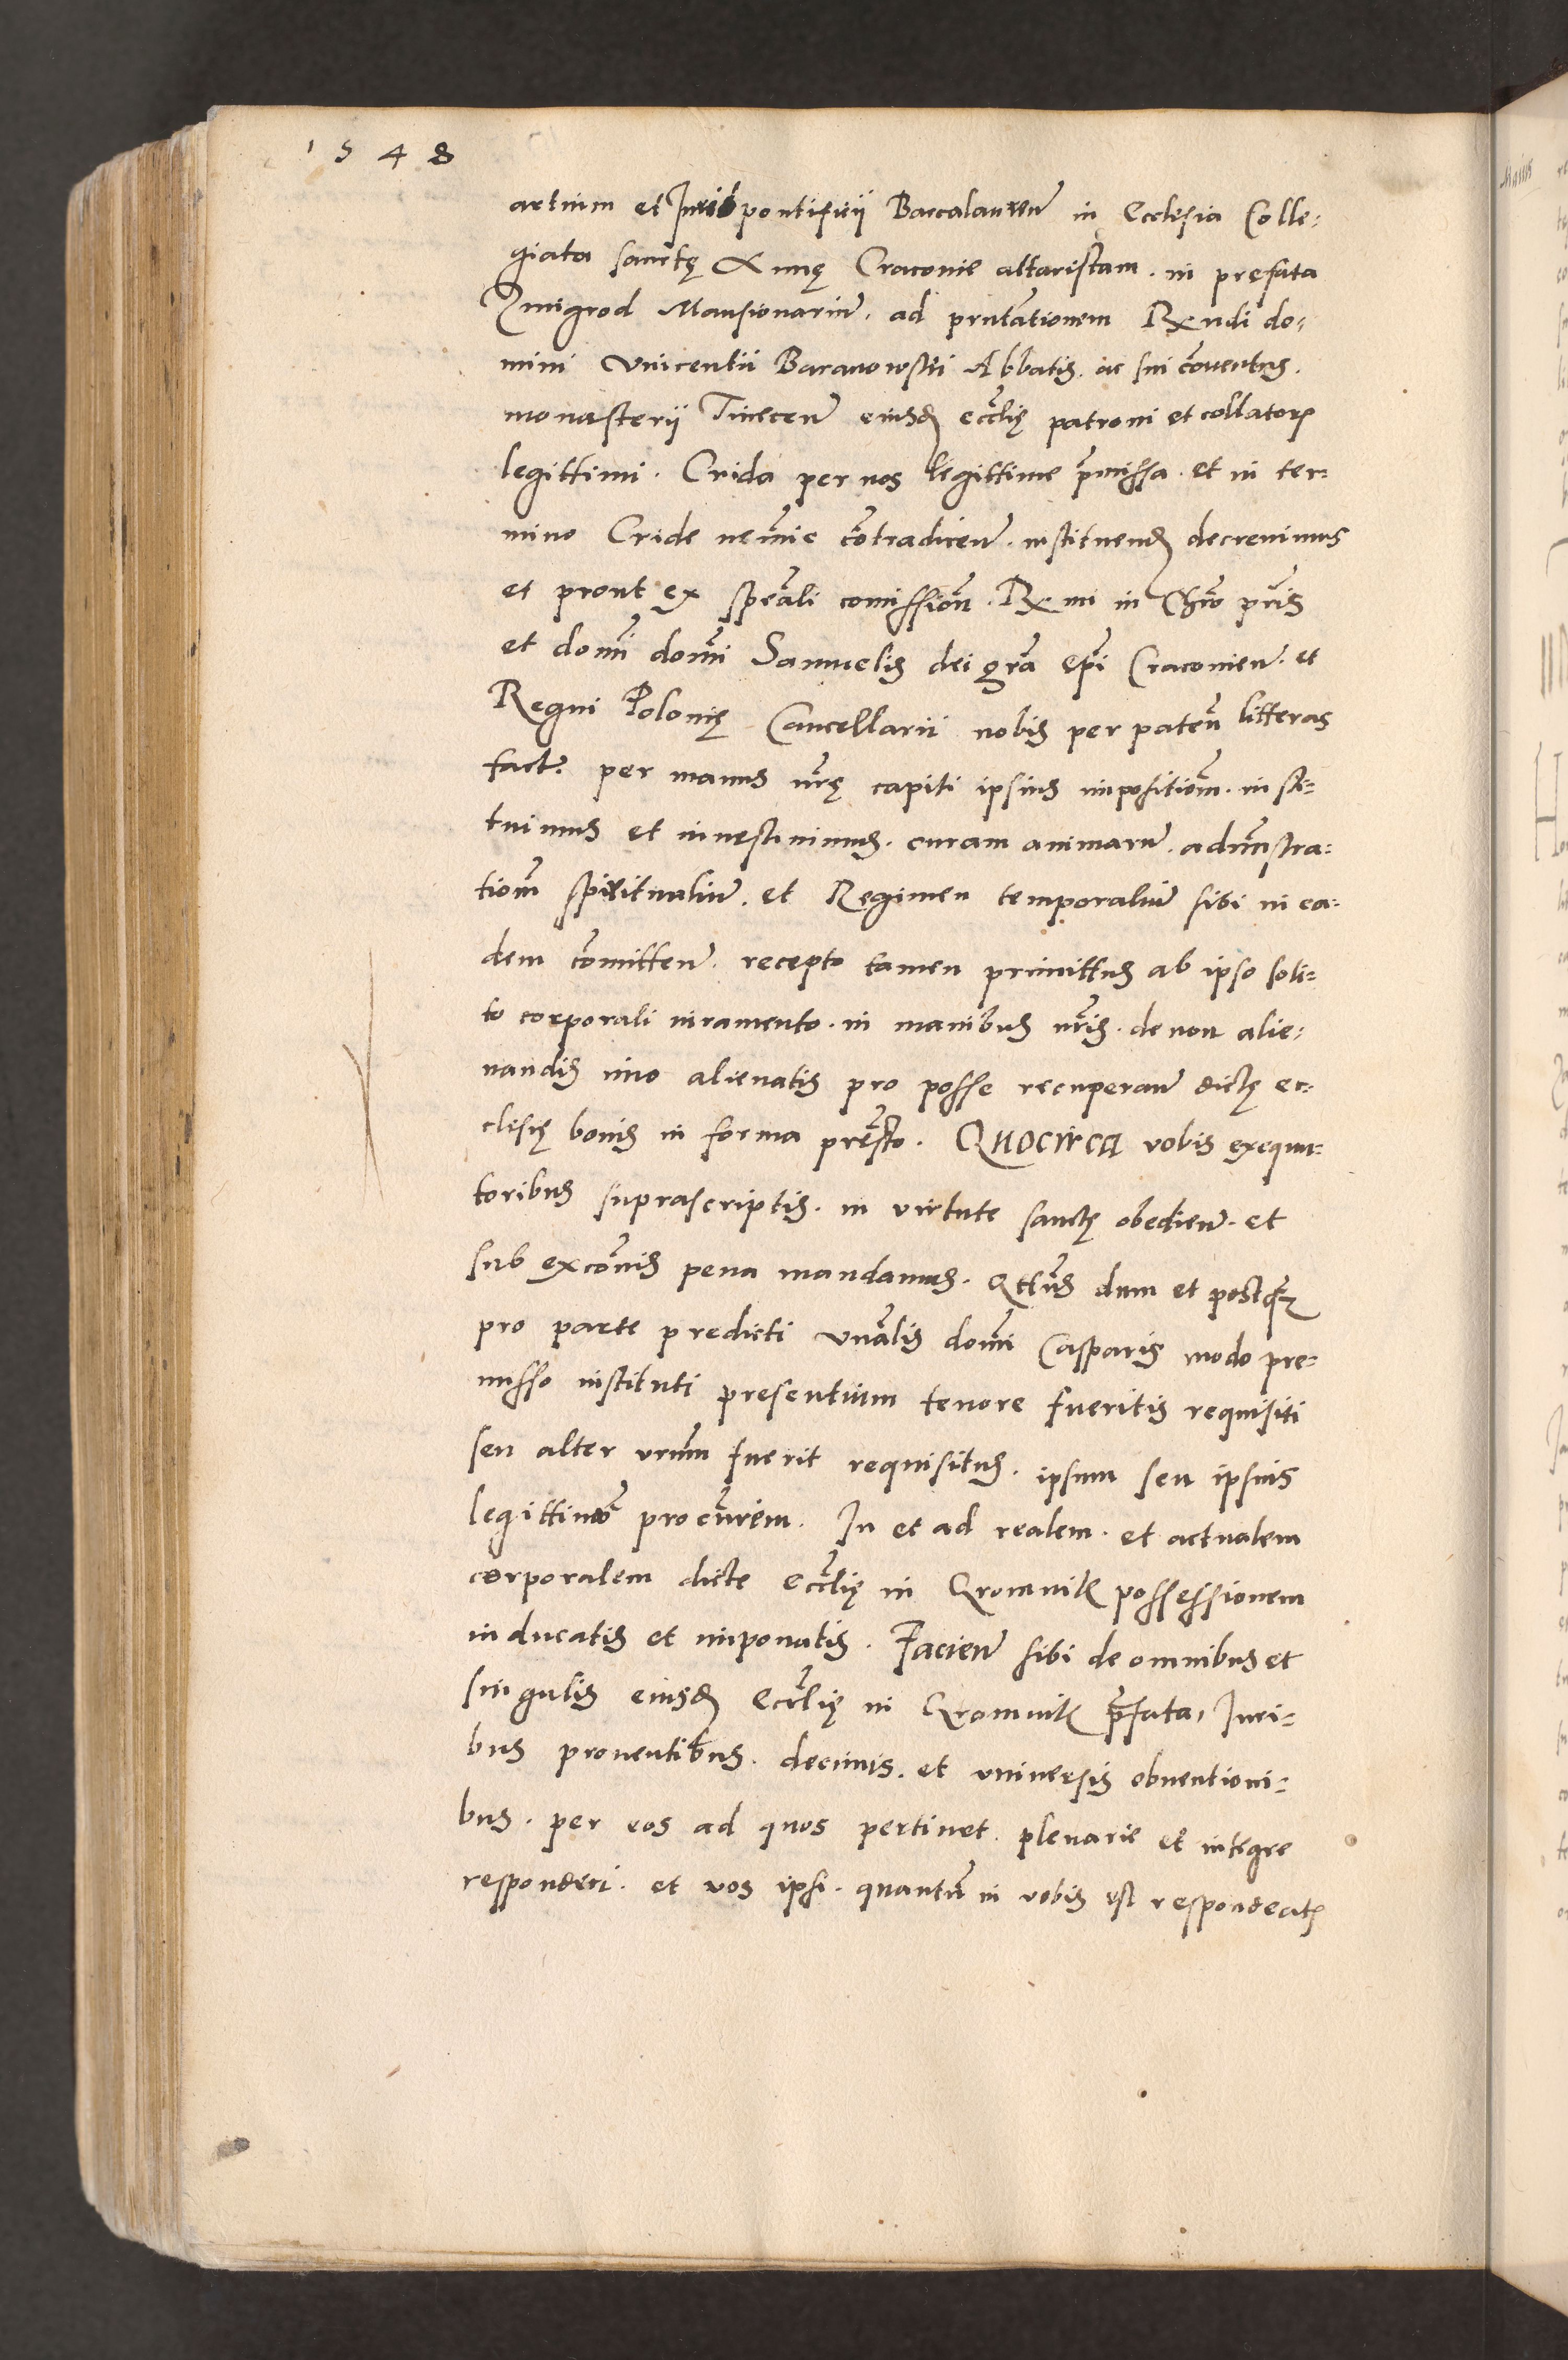 1548
artium et Juris pontificii Baccalaureū in Ecclesia Colle-
giata sanctę Annę Cracovie altaristam. in prefata
Zmigrod Mansionariū. ad pr̄ntationem Rndi do-
mini Vincentii Baranowski Abbatis. ac sui cōventus.
monasterii Tinecen̄ eiusd̄ ecclīę patroni et collatoris
legittimi. Crida per nos legittime p̄missa. et in ter-
mino Cride nemīe cōtradicen̄. instituend̄ decrevimus
et prout ex specāli comissiōn. Rmi in Chrō pr̄is
et domī domī Samuelis dei grā epī Cracovien̄. et
Regni Polonię Cancellarii nobis per paten̄ litteras
fact. per manus nrę capiti ipsius impositiōm. insti-
tuimus et investivimus. curam animarū. admīstra-
tiōm spiritualiū. et Regimen temporaliū sibi in ea-
dem cōmitten̄. recepto tamen primittus ab ipso soli-
to corporali iuramento. in manibus nr̄is. de non alie-
nandis imo alienatis pro posse recuperan̄ dictę ec-
clesię bonis in forma prēsto. Quocirca vobis exequu-
toribus suprascriptis. in virtute sanctę obedien̄. et
sub excōmīs pena mandamus. Qtēus dum et postq̄
pro parte predicti Vnālis domī Casparis modo pre-
misso instituti presentium tenore fueritis requisiti
seu alter vrūm fuerit requisitus. ipsum seu ipsius
legittimū procūrem. In et ad realem. et actualem
corporalem dicte Ecclīę in Qromnik possessionem
inducatis et imponatis. Facien̄ sibi de omnibus et
singulis eiusd̄ Ecclīę in Qromnik p̄fata, Juri-
bus proventibus. decimis. et universis obventioni-
bus. per eos ad quos pertinet. plenarie et integre
responderi. et vos ipsi. quantū in vobis est respondeatis